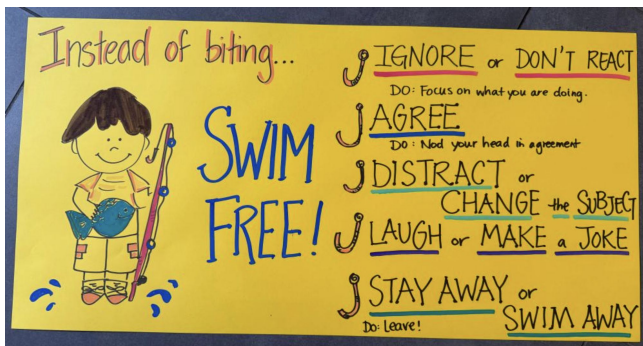 Instead of biting...
SWIM
FREE!
IGNORE or DON'T REACT
DO: Focus on what you are doing.
AGREE
DO: Nod your head in agreement
DISTRACT or
CHANGE the SUBJECT
LAUGH or MAKE a JOKE
STAY AWAY or
Do: Leave!
SWIM AWAY